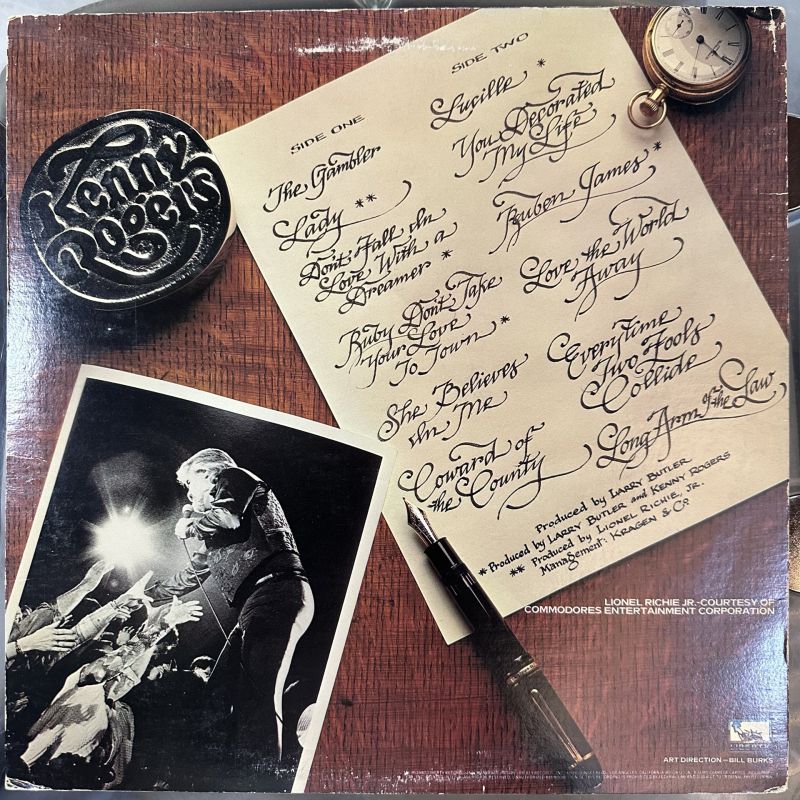 Kenny
Rogers
SIDE ONE
The Gambler
Lady **
Don't Fall In
Love With a
Dreamer *
Ruby Don't Take
Your Love
To Town *
She Believes
In Me
Coward of
the County
SIDE TWO
Lucille *
You Decorated
My Life
Reuben James *
Love the World
Away
Everytime
Two Fools
Collide
Long Arm of the Law
Produced by LARRY BUTLER
*Produced by LARRY BUTLER and KENNY ROGERS
** Produced by LIONEL RICHIE, JR.
Management: KRAGEN & Co
LIONEL RICHIE JR.-COURTESY OF
COMMODORES ENTERTAINMENT CORPORATION
LIBERTY
ART DIRECTION—BILL BURKS